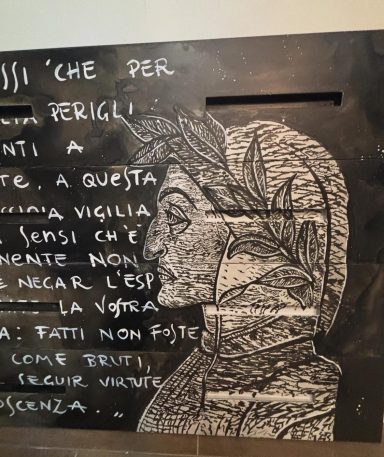 SSI 'CHE PER
PERIGLI
NTI A
TE, A QUESTA
VIGILIA
SENSI CH'È
NENTE NON
E NEGAR L'ESP
LA VOSTRA
A: FATTI NON FOSTE
COME BRUTI,
SEGUIR VIRTUTE
OSCENZA...